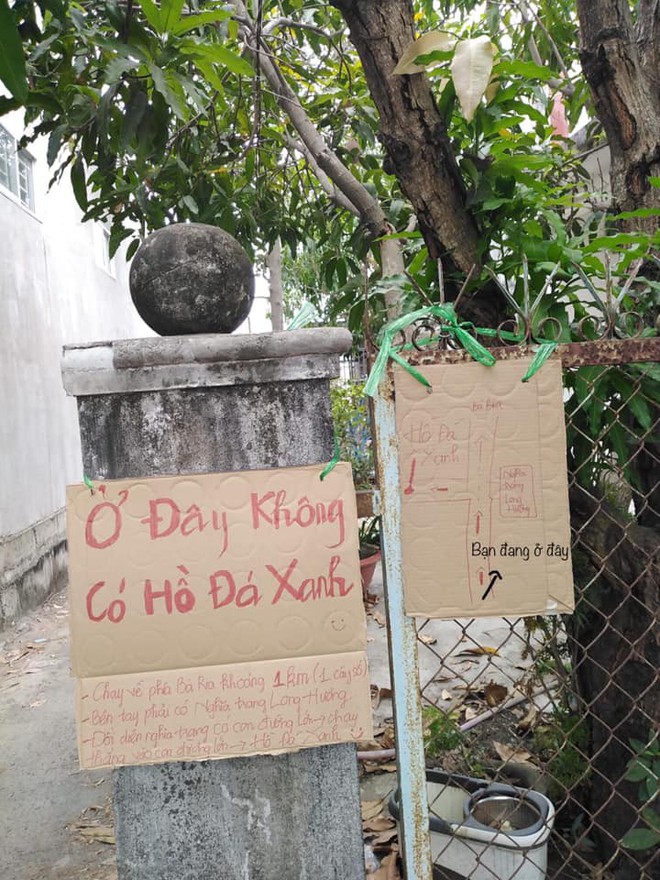 Ở Đây Không
Có Hồ Đá Xanh
- Chạy về phía Bà Rịa khoảng 1km (1 cây số)
- Bên tay phải có Nghĩa trang Long Hương
- Đối diện nghĩa trang có con đường lớn → chạy
thẳng vào con đường lớn → Hồ Đá Xanh
Bà Rịa
Hồ Đá
Xanh
Nghĩa
trang
Long
Hương
Bạn đang ở đây